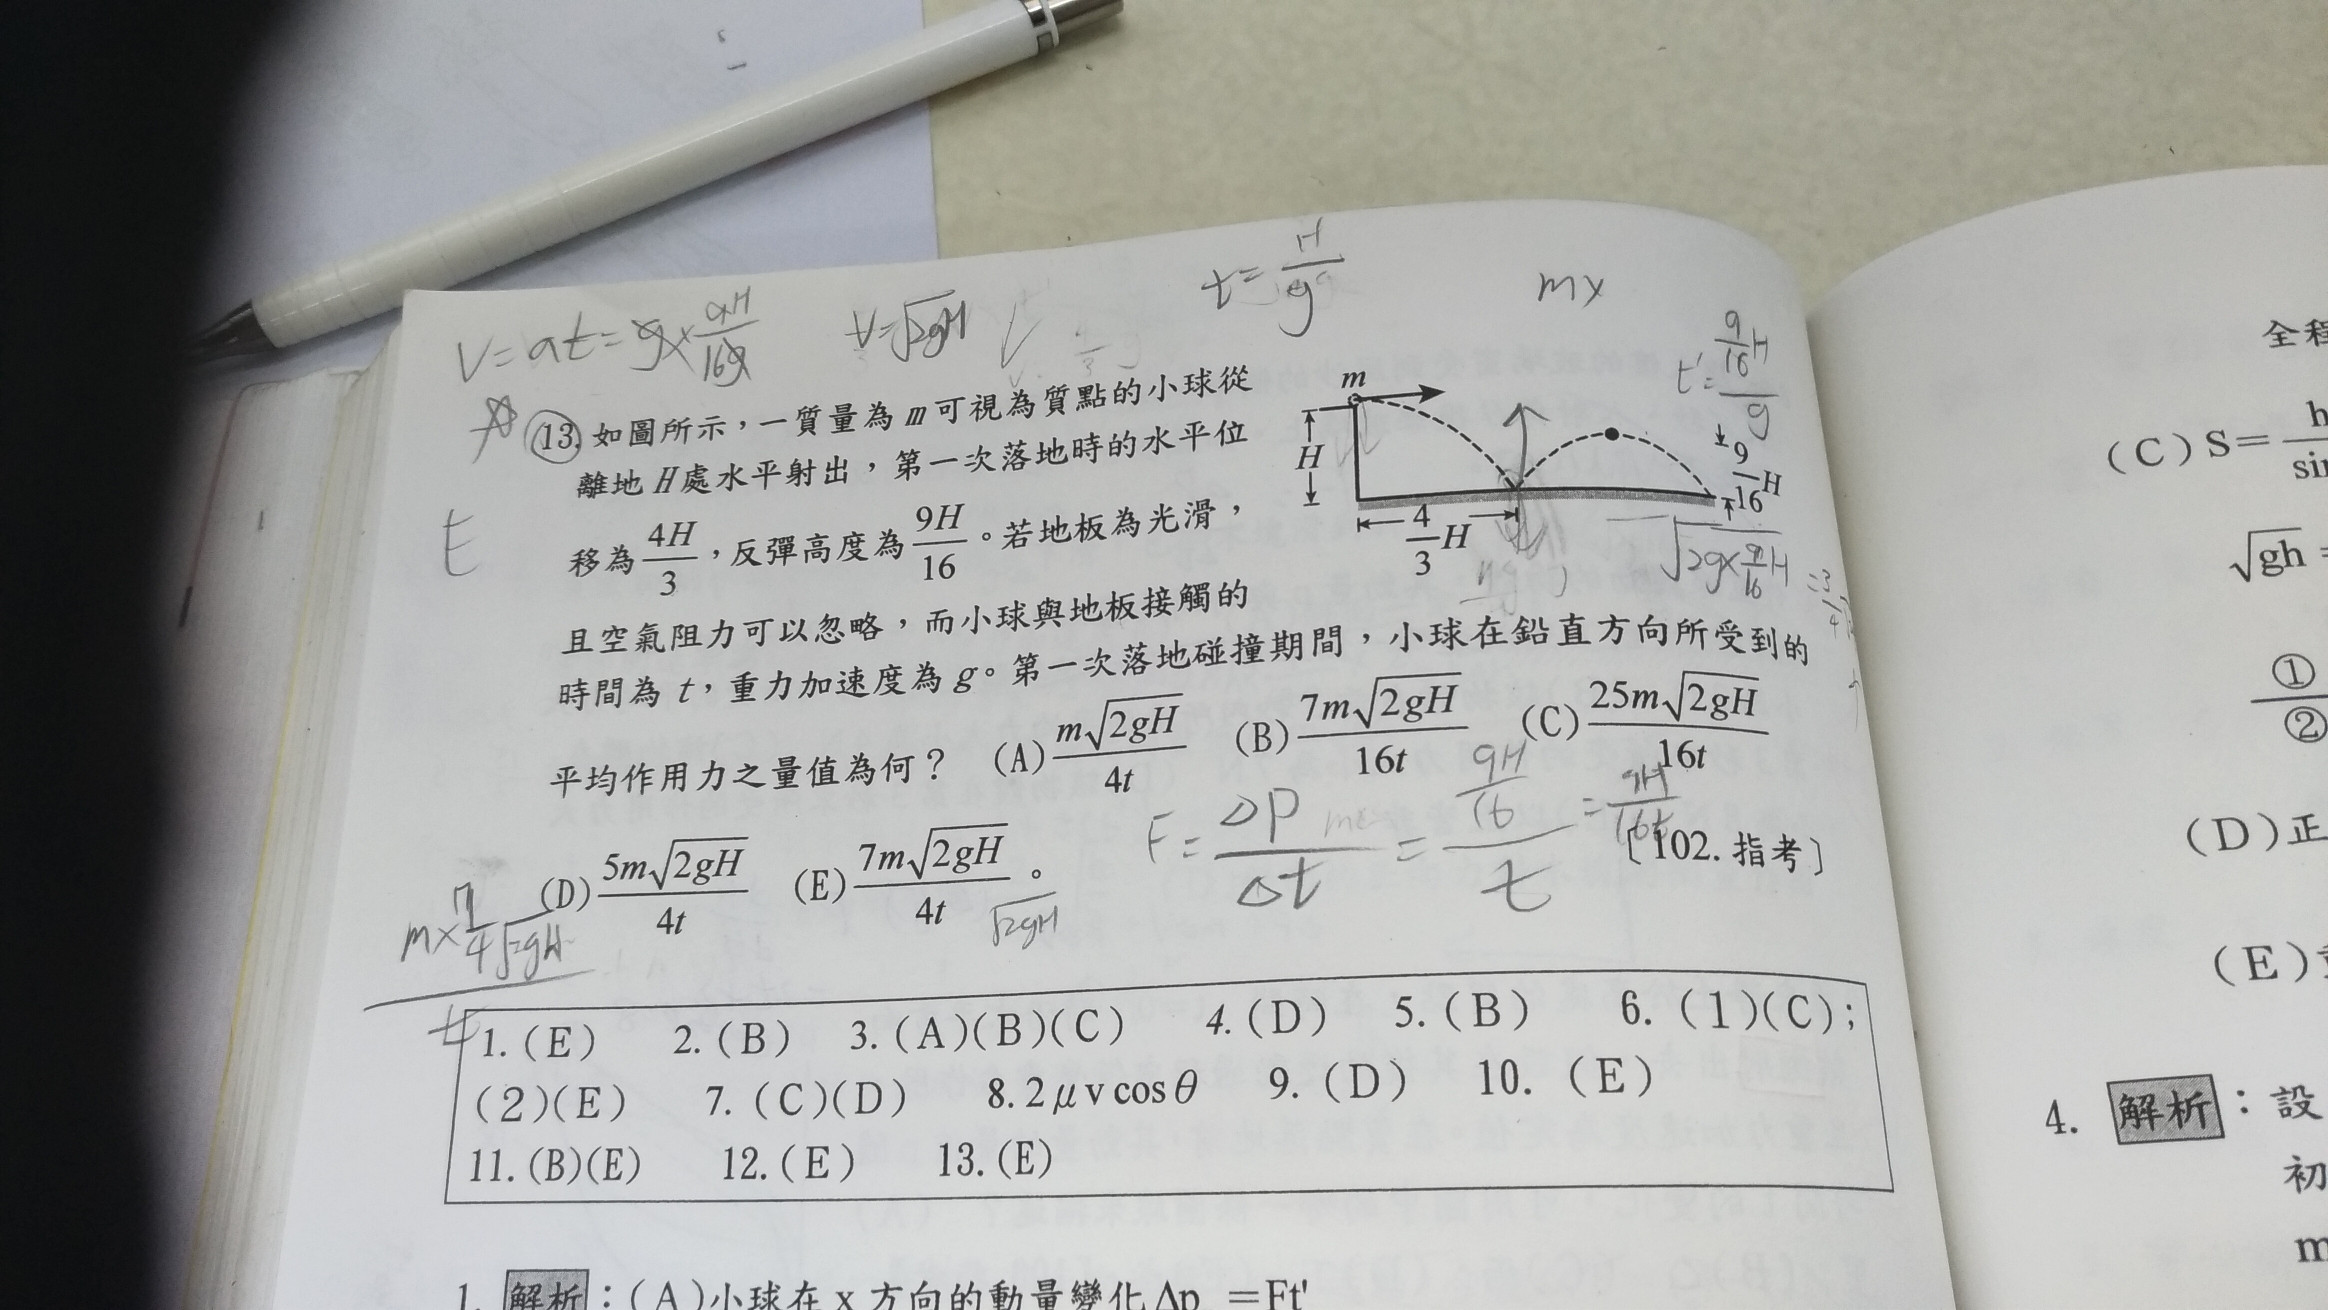 t = H/g
mx
V = at = g × 9H/16g
V = √2gH
t' = 9/16 H / g
13. 如圖所示，一質量為 m 可視為質點的小球從
離地 H 處水平射出，第一次落地時的水平位
移為 4H/3，反彈高度為 9H/16。若地板為光滑，
且空氣阻力可以忽略，而小球與地板接觸的
時間為 t，重力加速度為 g。第一次落地碰撞期間，小球在鉛直方向所受到的
平均作用力之量值為何？ (A) m√2gH/4t (B) 7m√2gH/16t (C) 25m√2gH/16t
(D) 5m√2gH/4t (E) 7m√2gH/4t 。 〔102. 指考〕
m
H
4/3 H
9/16 H
√2g×9/16 H
t
F = ΔP/Δt = 9H/16 / t = 9H/16t
√2gH
m × 7/4 √2gH
t
1. (E) 2. (B) 3. (A)(B)(C) 4. (D) 5. (B) 6. (1)(C);
(2)(E) 7. (C)(D) 8. 2μv cosθ 9. (D) 10. (E)
11. (B)(E) 12. (E) 13. (E)
1. 解析：(A)小球在 x 方向的動量變化 Δp =Ft'
全程
(C) S= h
sin
√gh =
①
②
(D) 正
(E)
4. 解析：設
初
m